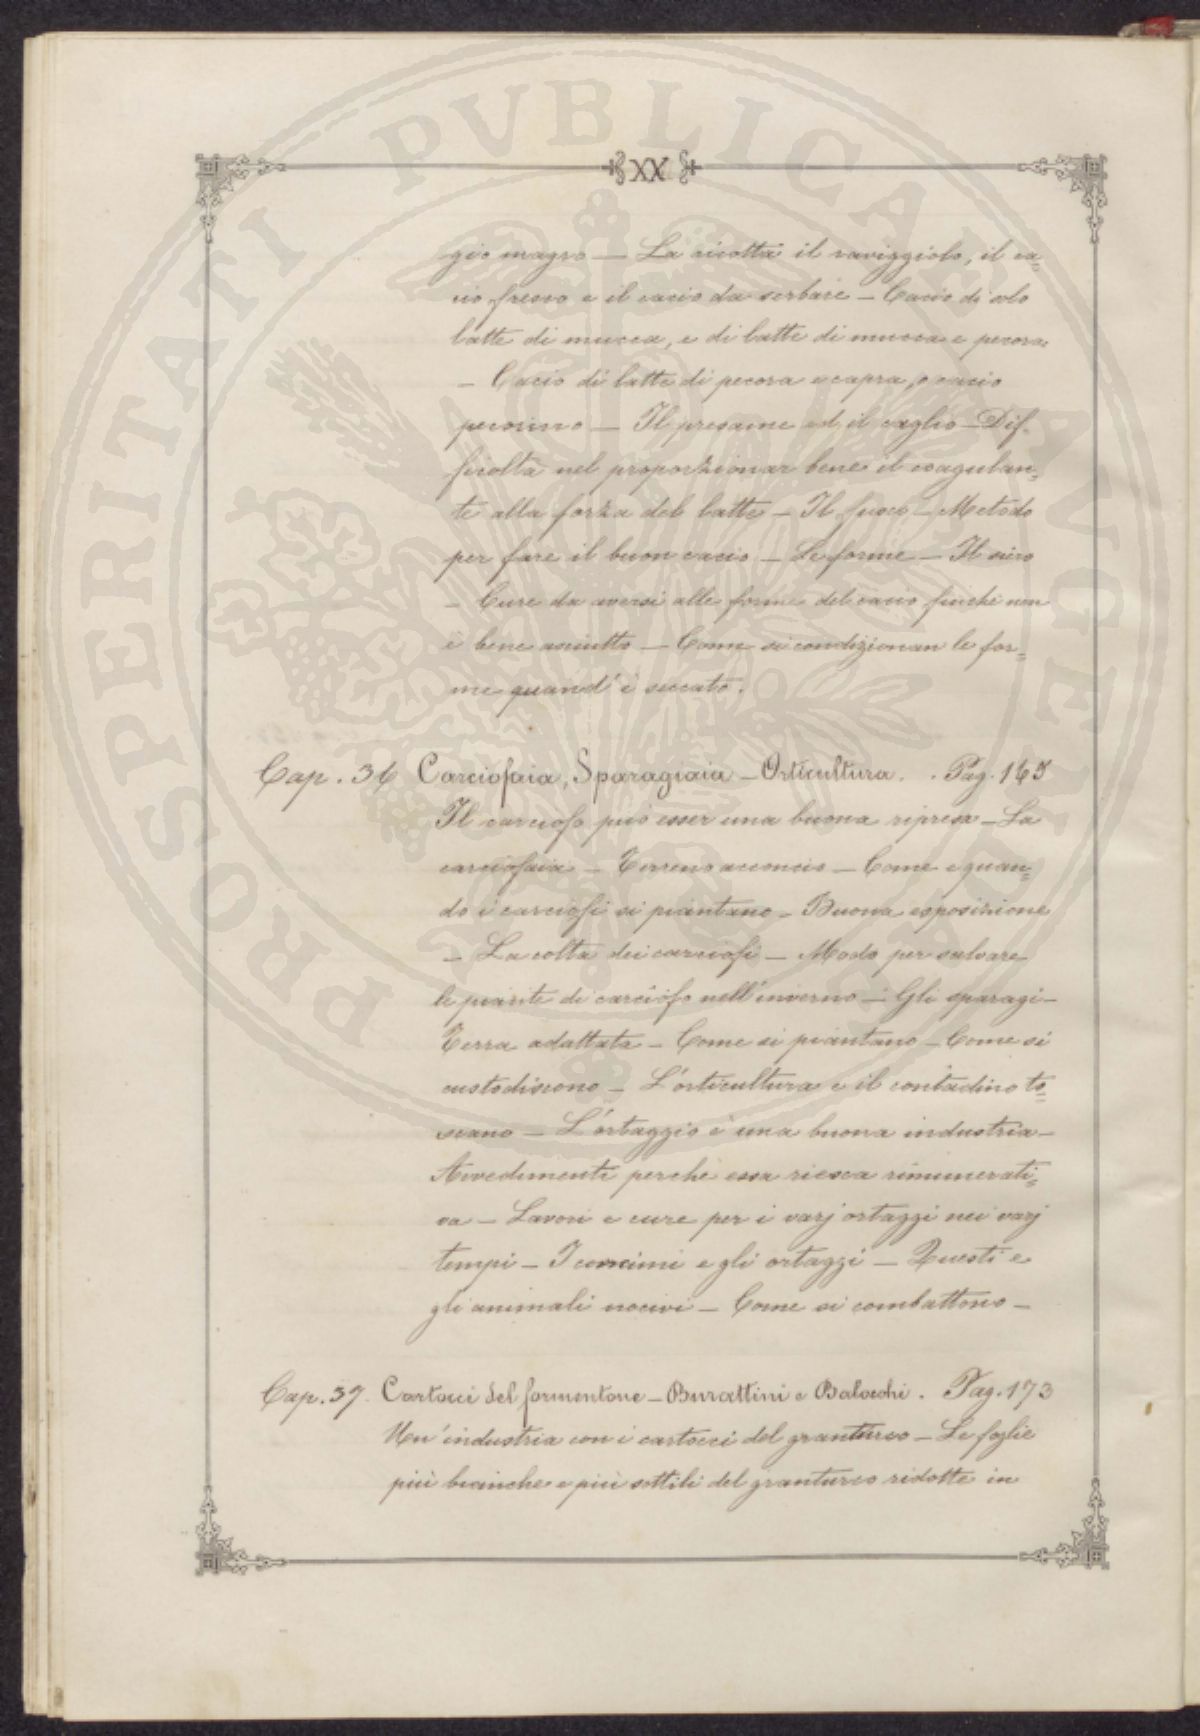 XX
gio magro — La ricotta il raviggiolo, il ca=
cio fresco e il cacio da serbare — Cacio di solo
latte di mucca, e di latte di mucca e pecora
— Cacio di latte di pecora e capra, o cacio
pecorino — Il presame ed il caglio — Dif-
ficoltà nel proporzionar bene il coagulan=
te alla forza del latte — Il fuoco — Metodo
per fare il buon cacio — Le forme — Il siero
— Cure da aversi alle forme del cacio finchè non
è bene asciutto — Come si condizionan le for=
me quand'è seccato.
Cap. 36 Carciofaia, Sparagiaia — Orticultura. . Pag. 165
Il carciofo può esser una buona ripresa — La
carciofaia — Terreno acconcio — Come e quan=
do i carciofi si piantano — Buona esposizione
— La colta dei carciofi — Modo per salvare
le piante di carciofo nell'inverno — Gli sparagi —
Terra adattata — Come si piantano — Come si
custodiscono — L'orticultura e il contadino to=
scano — L'ortaggio è una buona industria —
Avvedimenti perchè essa riesca rimunerati=
va — Lavori e cure per i varj ortaggi nei varj
tempi — I concimi e gli ortaggi — Questi e
gli animali nocivi — Come si combattono —
Cap. 37. Cartocci del formentone — Burattini e Balocchi. Pag. 173
Un'industria con i cartocci del granturco — Le foglie
più bianche e più sottili del granturco ridotte in
PROSPERITATI PVBLICAE AVGENDAE